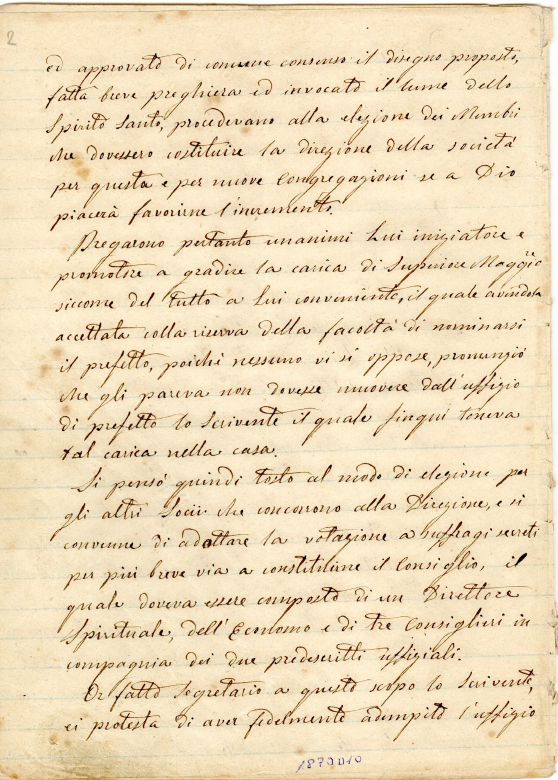 2
ed approvato di comune consenso il disegno proposto,
fatta breve preghiera ed invocato il lume dello
Spirito Santo, procedevano alla elezione dei Membri
che dovessero costituire la direzione della società
per questa e per nuove Congregazioni se a Dio
piacerà favorirne l'incremento.
Pregarono pertanto unanimi Lui iniziatore e
promotore a gradire la carica di Superiore Maggre
siccome del tutto a Lui conveniente, il quale avendola
accettata colla riserva della facoltà di nominarsi
il prefetto, poichè nessuno vi si oppose, pronunziò
che gli pareva non dovesse muovere dall'uffizio
di prefetto lo scrivente il quale finqui teneva
tal carica nella casa.
Si pensò quindi tosto al modo di elezione per
gli altri Socii che concorrono alla Direzione, e si
convenne di adottare la votazione a suffragi secreti
per più breve via a constituirne il Consiglio, il
quale doveva essere composto di un Direttore
Spirituale, dell'Economo e di tre Consiglieri in
compagnia dei due predescritti uffiziali.
Or fatto Segretario a questo scopo lo Scrivente,
ei protesta di aver fedelmente adempito l'uffizio